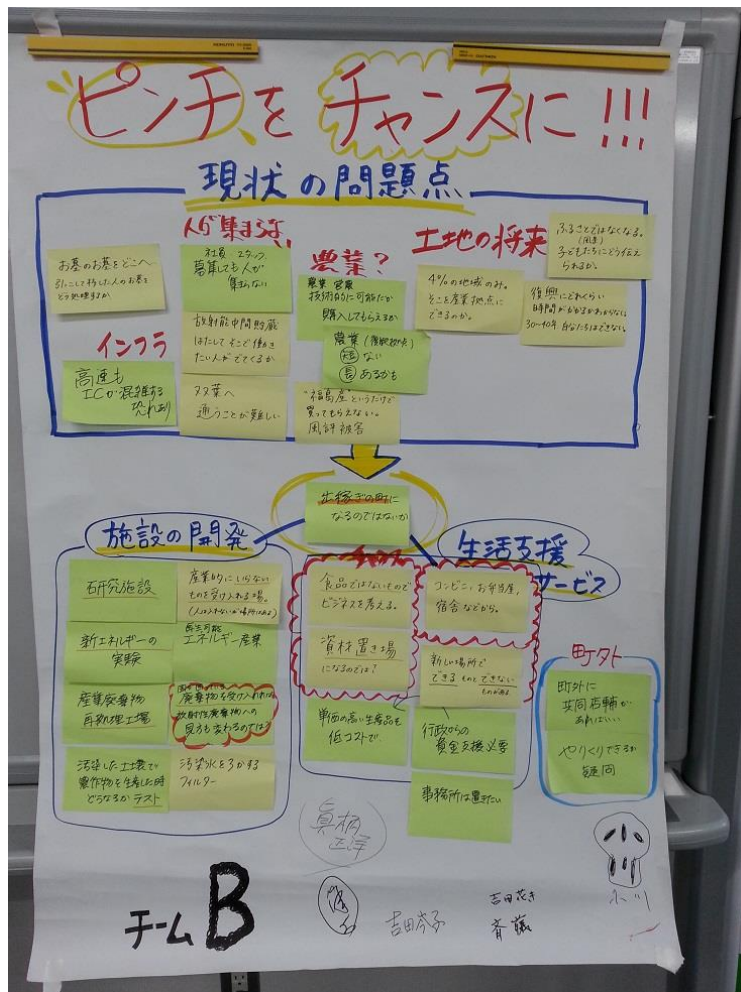 ピンチをチャンスに!!!
現状の問題点
人が集まらない
農業?
土地の将来
インフラ
お墓のお墓をどこへ
引にこして移した人のお墓を
どう処理するか
社員・スタッフ
募集しても人が
集まらない
放射能中間貯蔵
はたしてそこで働き
たい人がでてくるか
双葉へ
通うことが難しい
高速も
ICが混雑する
恐れあり
農業 営業
技術的に可能だか
購入してもらえるか
農業
短 ない
長 あるかも
"福島産"というだけで
買ってもらえない。
風評被害
4%の地域のみ。
そこを産業拠点に
できるのか。
ふるさとではなくなる。
(風景)
子どもたちにどう伝え
られるか。
復興にどれくらい
時間がかかるかわからない
30~40年 自分たちはできない。
出稼ぎの町に
なるのではないか
施設の開発
研究施設
産業的にいらない
ものを受け入れる場。
新エネルギーの
実験
再生可能
エネルギー産業
産業廃棄物
再処理工場
廃棄物を受け入れれば
放射性廃棄物への
見方も変わるのでは?
汚染した土壌で
農作物を生産した時
どうなるか テスト
汚染水をろかする
フィルター
チャンス
食品ではないもので
ビジネスを考える。
資材置き場
になるのでは?
単価の高い生産品を
低コストで
生活支援
サービス
コンビニ、お弁当屋、
宿舎などから。
新しい場所で
できるものとできない
ものがある
行政からの
資金支援必要
事務所は置きたい
町外
町外に
共同店舗が
あればいい
やりくりできるか
疑問
チームB
眞柄
正洋
吉田
吉田花き
斉藤
小川
小川